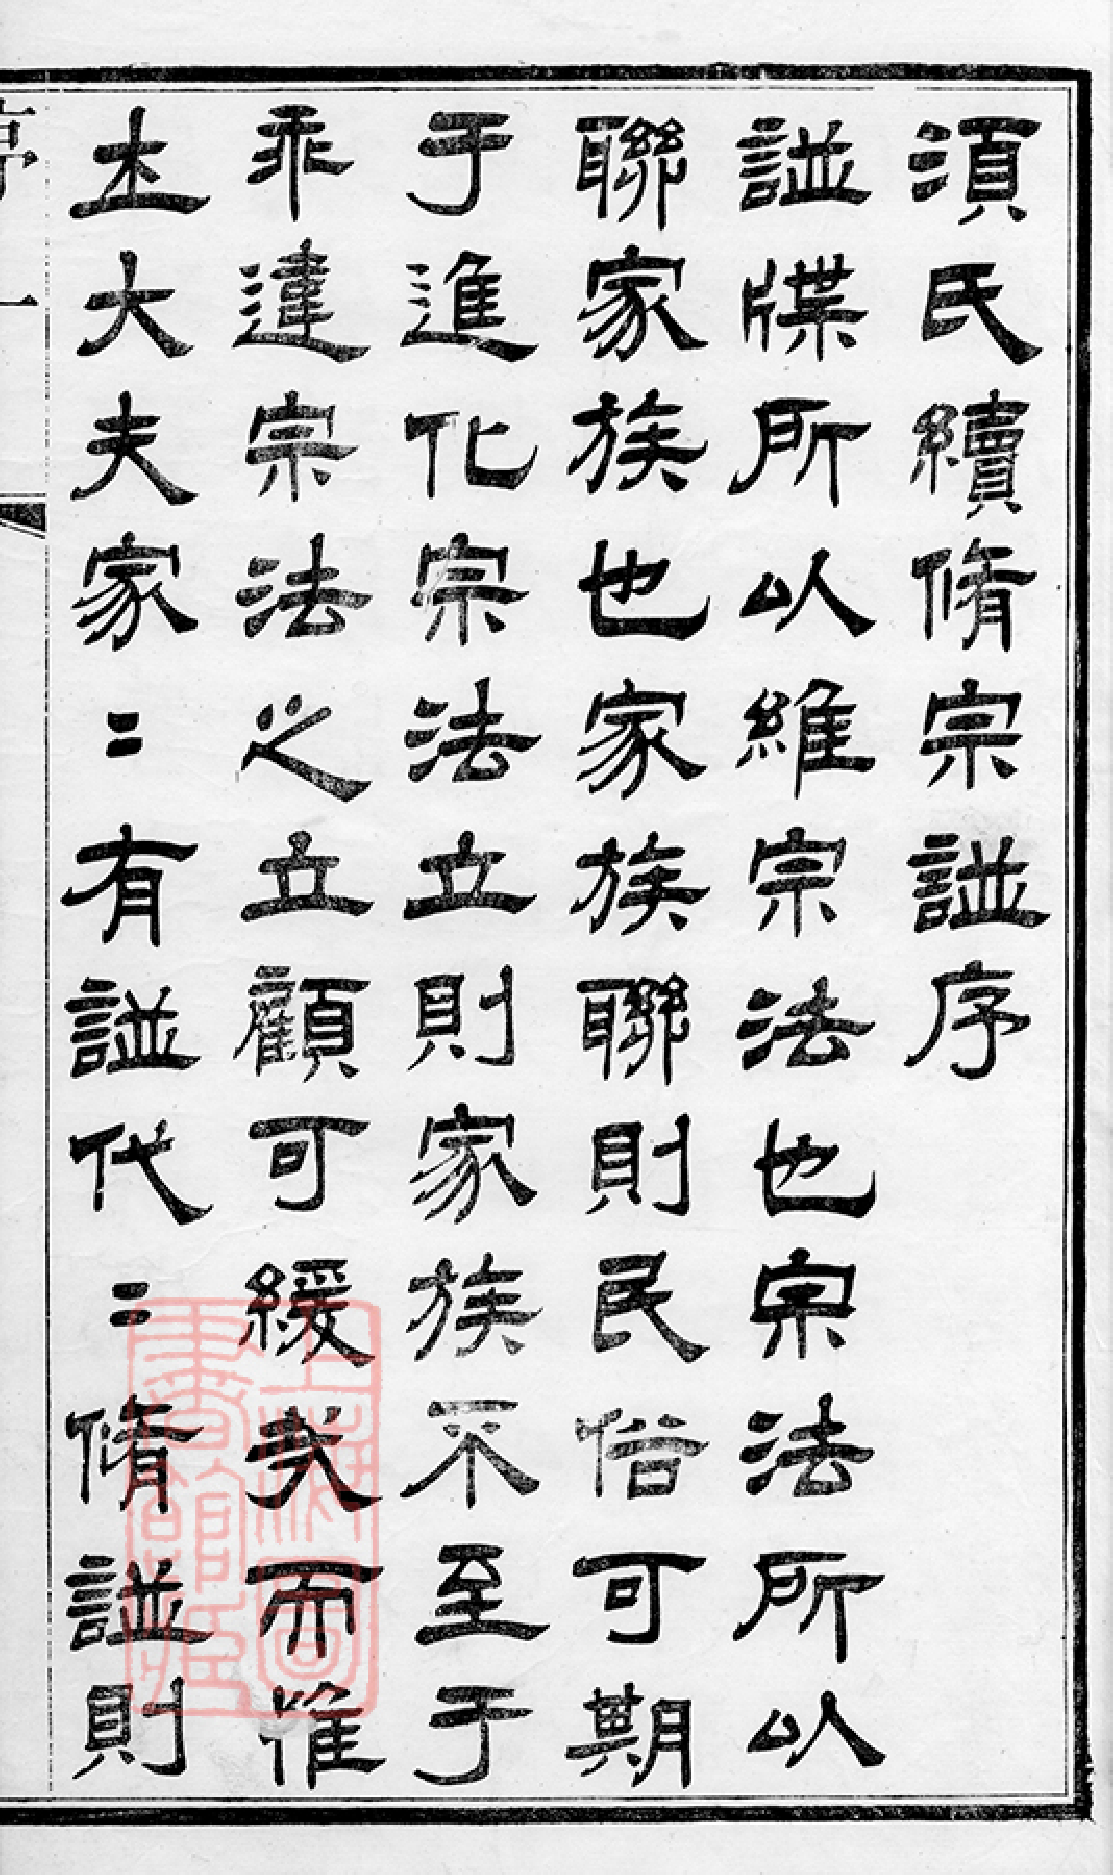 湏氏續脩宗諩序
諩牒所以維宗法也宗法所以
聯家族也家族聯則民俗可期
于進化宗法立則家族不至于
乖違宗法之立顧可緩哉而惟
士大夫家〻有諩代〻脩諩則
序一
上海圖
書館藏